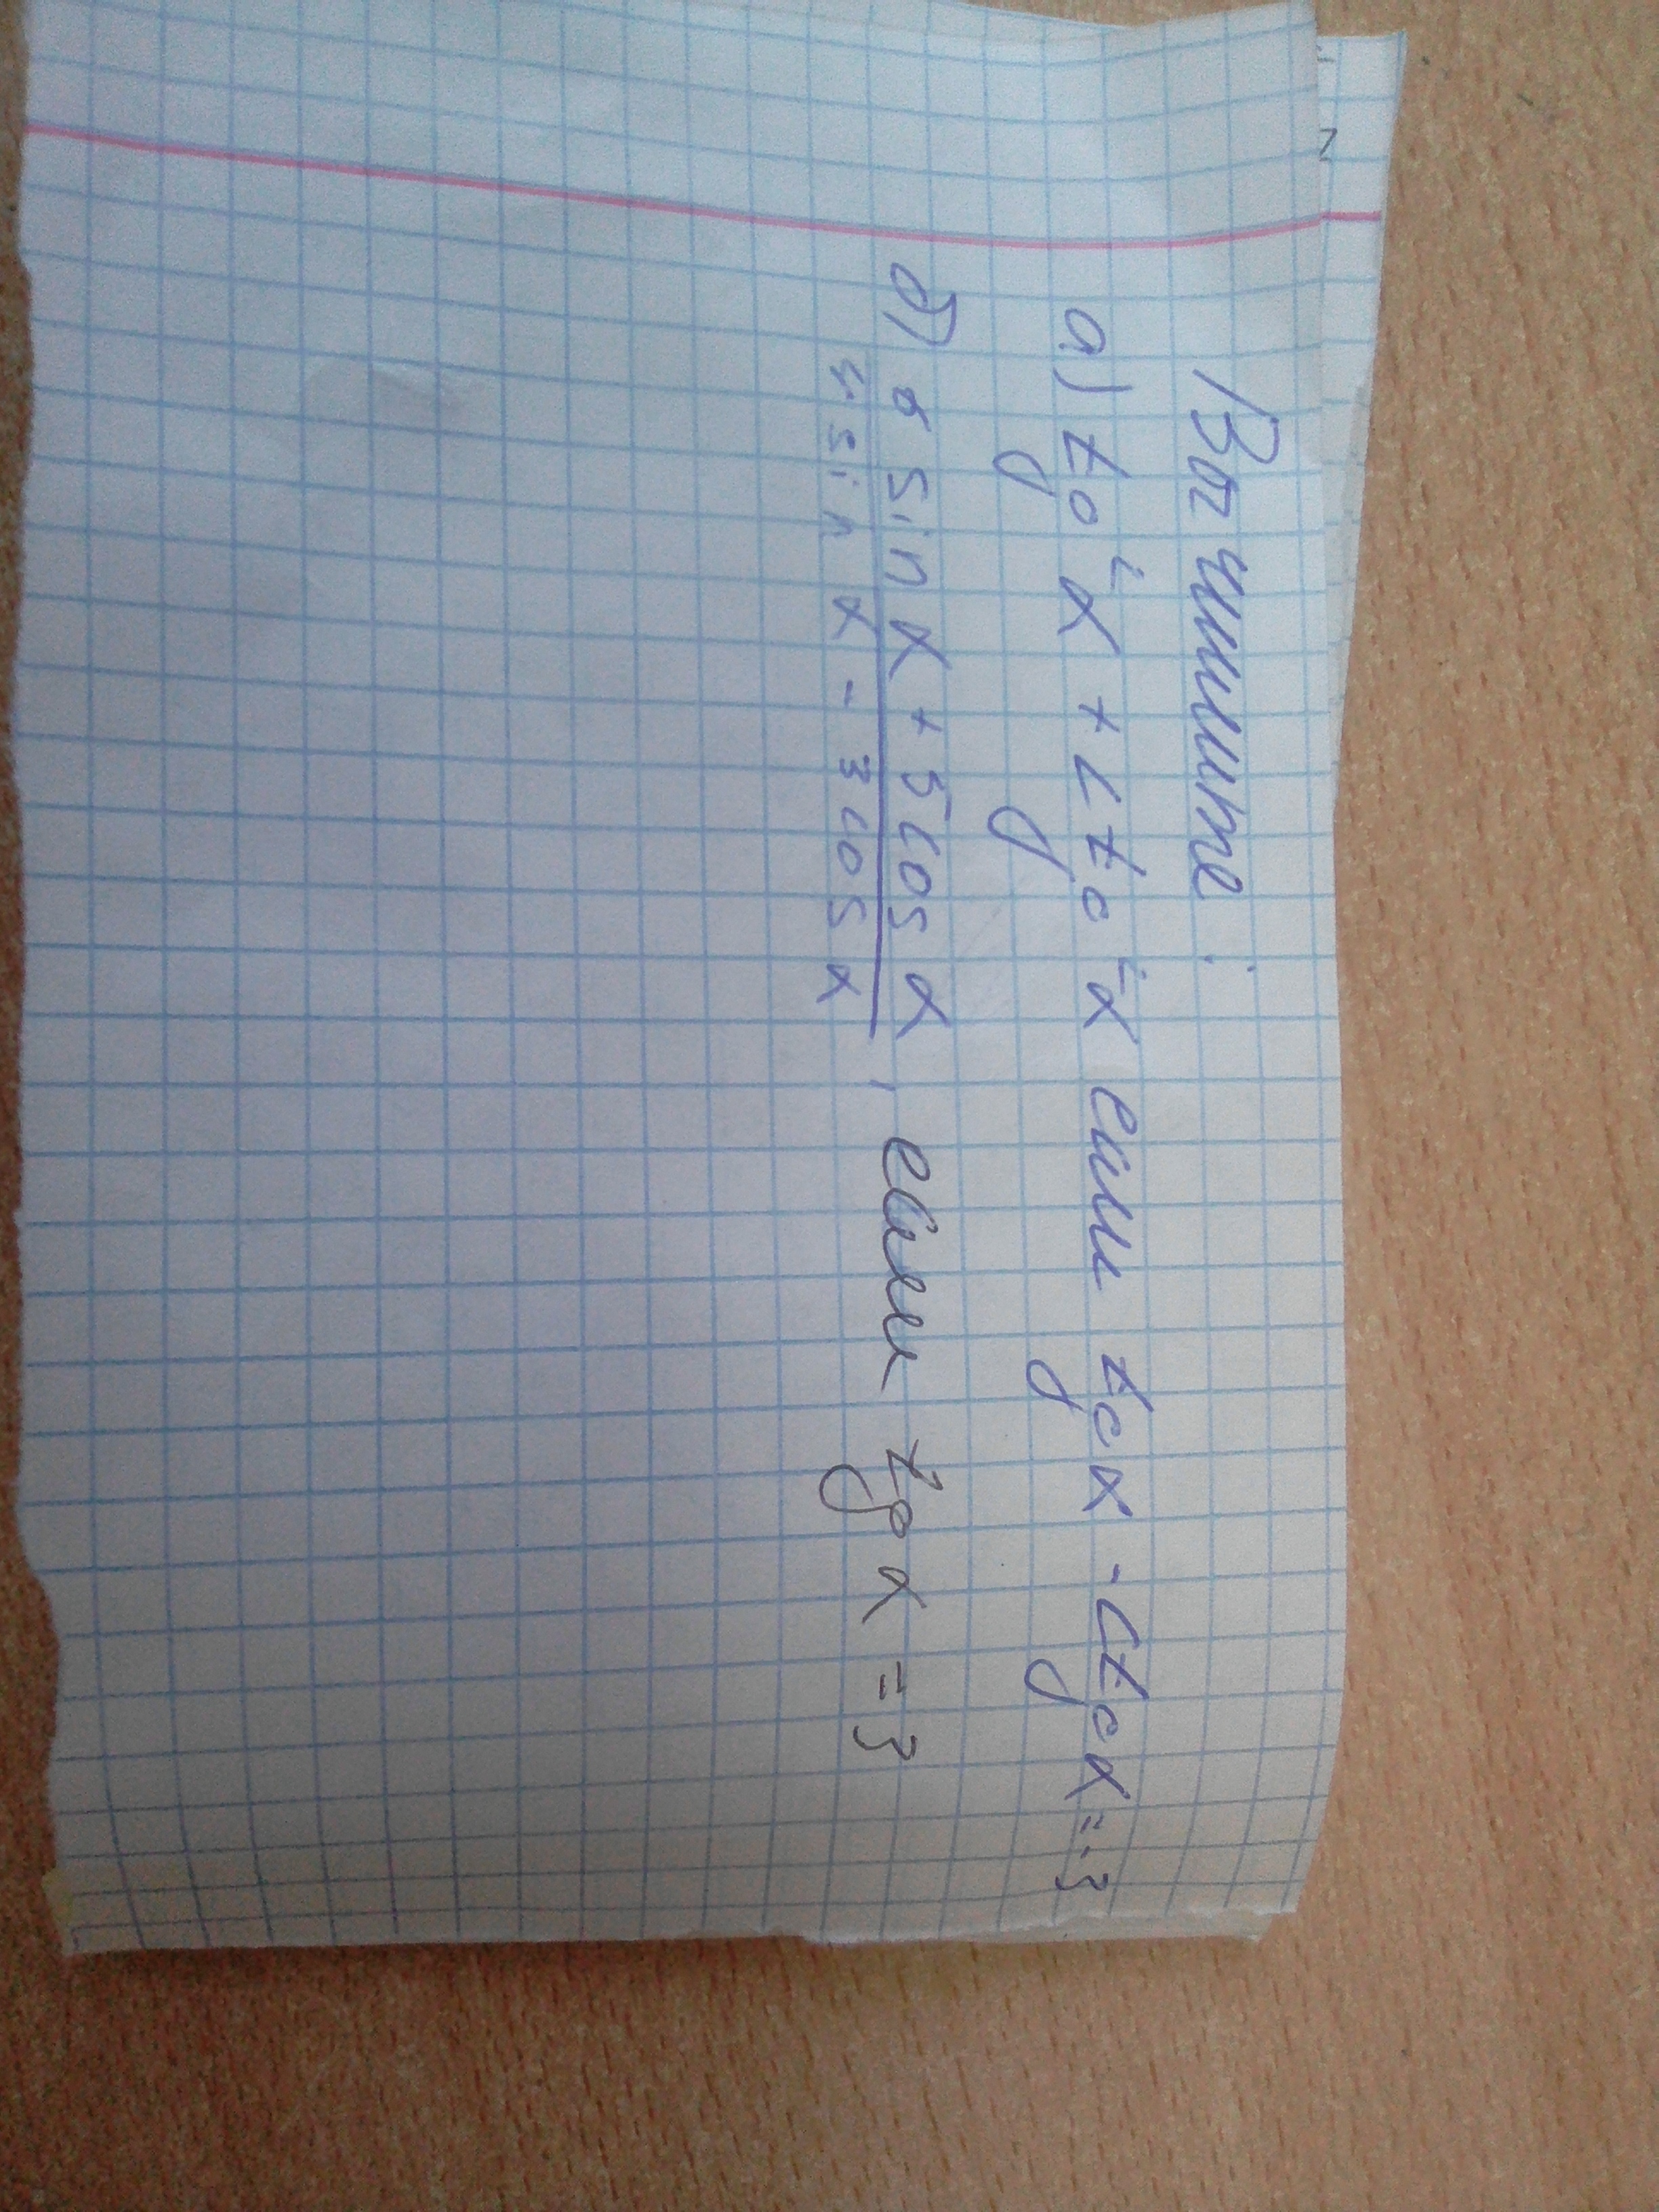 Вычислите:
а) tg²α + ctg²α если tgα - ctgα = -3
б) 6 sin α + 5 cos α
4 sin α - 3 cos α , если tg α = 3
7